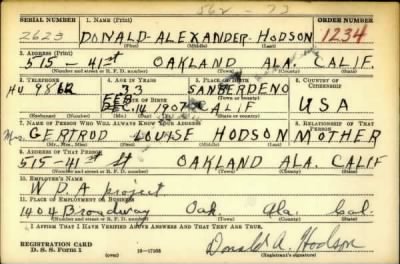 562 73
SERIAL NUMBER 1. NAME (Print) ORDER NUMBER
2623 DONALD-ALEXANDER-HODSON 1234
(First) (Middle) (Last)
2. ADDRESS (Print)
515 - 41st OAKLAND ALA. CALIF.
(Number and street or R. F. D. number) (Town) (County) (State)
3. TELEPHONE 4. AGE IN YEARS 5. PLACE OF BIRTH 6. COUNTRY OF CITIZENSHIP
HU 9862 33 SANBERDENO
DATE OF BIRTH (Town or county)
DEC. 14 1907 CALIF USA
(Exchange) (Number) (Mo.) (Day) (Yr.) (State or country)
7. NAME OF PERSON WHO WILL ALWAYS KNOW YOUR ADDRESS 8. RELATIONSHIP OF THAT PERSON
Mrs. GERTROD LOUISE HODSON MOTHER
(Mr., Mrs., Miss) (First) (Middle) (Last)
9. ADDRESS OF THAT PERSON
515-41st St OAKLAND ALA. CALIF
(Number and street or R. F. D. number) (Town) (County) (State)
10. EMPLOYER'S NAME
W D.A project
11. PLACE OF EMPLOYMENT OR BUSINESS
1404 Broadway Oak. Ala. Cal.
(Number and street or R. F. D. number) (Town) (County) (State)
I AFFIRM THAT I HAVE VERIFIED ABOVE ANSWERS AND THAT THEY ARE TRUE.
REGISTRATION CARD
D. S. S. Form 1 16—17105 Donald A. Hodson
(Registrant's signature)